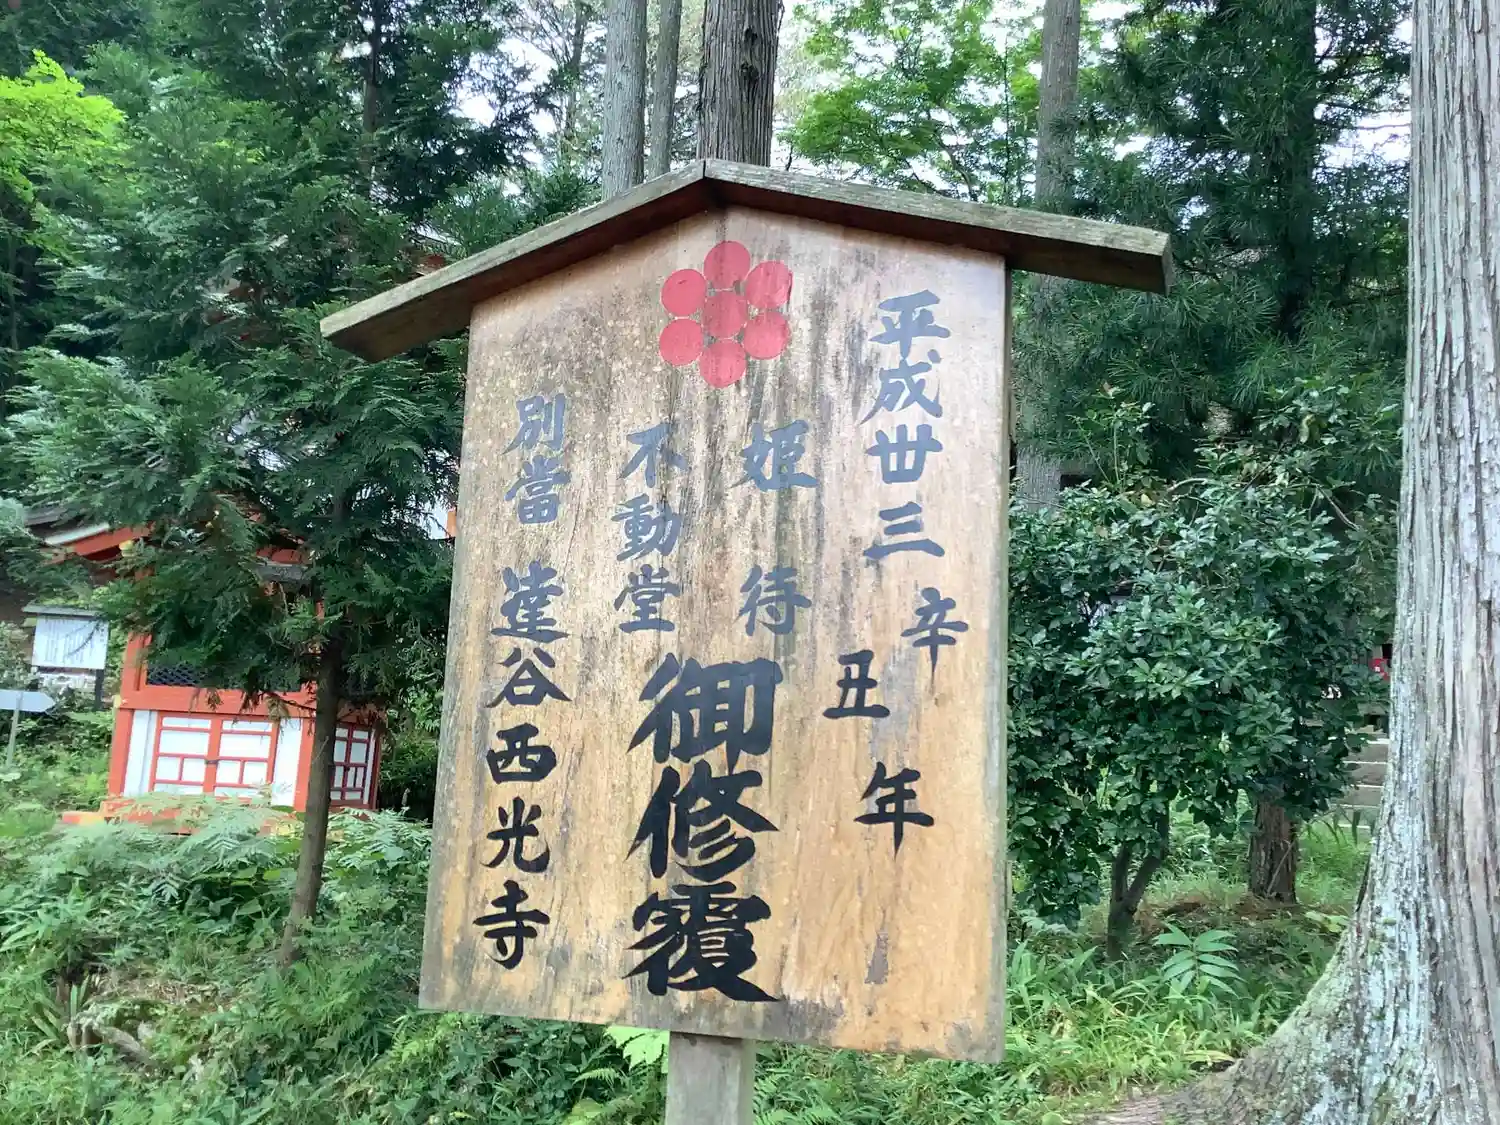 平成丗三辛丑年
姫待
不動堂
御修覆
別當 達谷西光寺